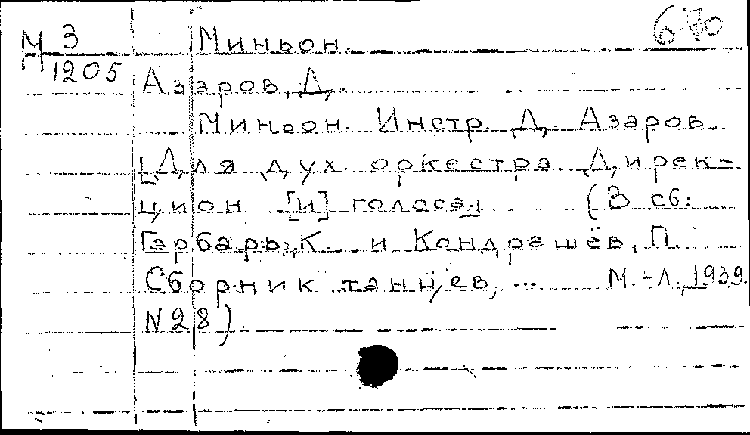 М 3 Миньон. 670
1205 Азаров, Д.
Миньон. Инстр. Д. Азаров.
[Для дух. оркестра. Дирек-
цион [и] голоса] (В сб.:
Гарбарь, К. и Кондрашёв, П.
Сборник танцев, ... М.-Л., 1939.
N28)